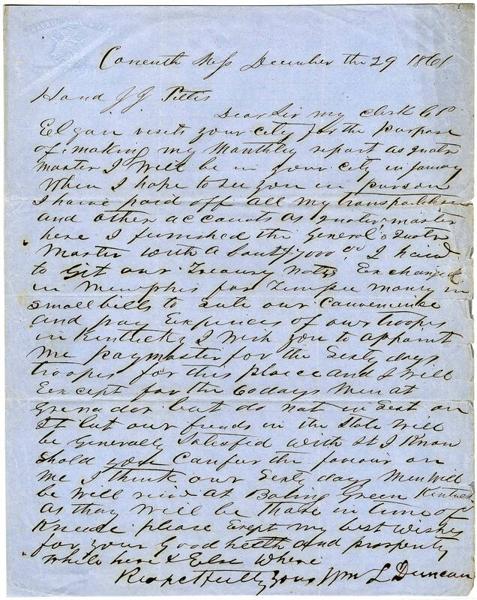 Coneuth Miss December the 29 1861
Hond J. J. Pettis
Dear Sir my clerk C P
Elgan visits your city for the purpose
of making my Monthly report as quater
master I will be in your city in January
When I hope to see you in person
I have paid off all my transportation
and other accounts as quater master
here I furnished the General's Quater
Master with about 7000.00 I had
to git our Treasury Notes Exchanged
in Memphis for Tennessee money in
small bills to sute our Convenience
and pay Expences of our troopes
in Kentucky I wish you to appoint
me paymaster for the Sixty days
troopes for this place and I will
Except for the 60 days Men at
Grenada but do not insist on
it but our friends in the State will
be Generally Satisfied with it I Know
Shold you Canfur the favour on
me I think our Sixty days Men Will
be Will at Boling Green Kentucky
as thay Will be thare in time of
Kneede please Exept my best wishes
for your Good helth and prosperity
While here & Else Where
Respectfully yous Wm L Duncan